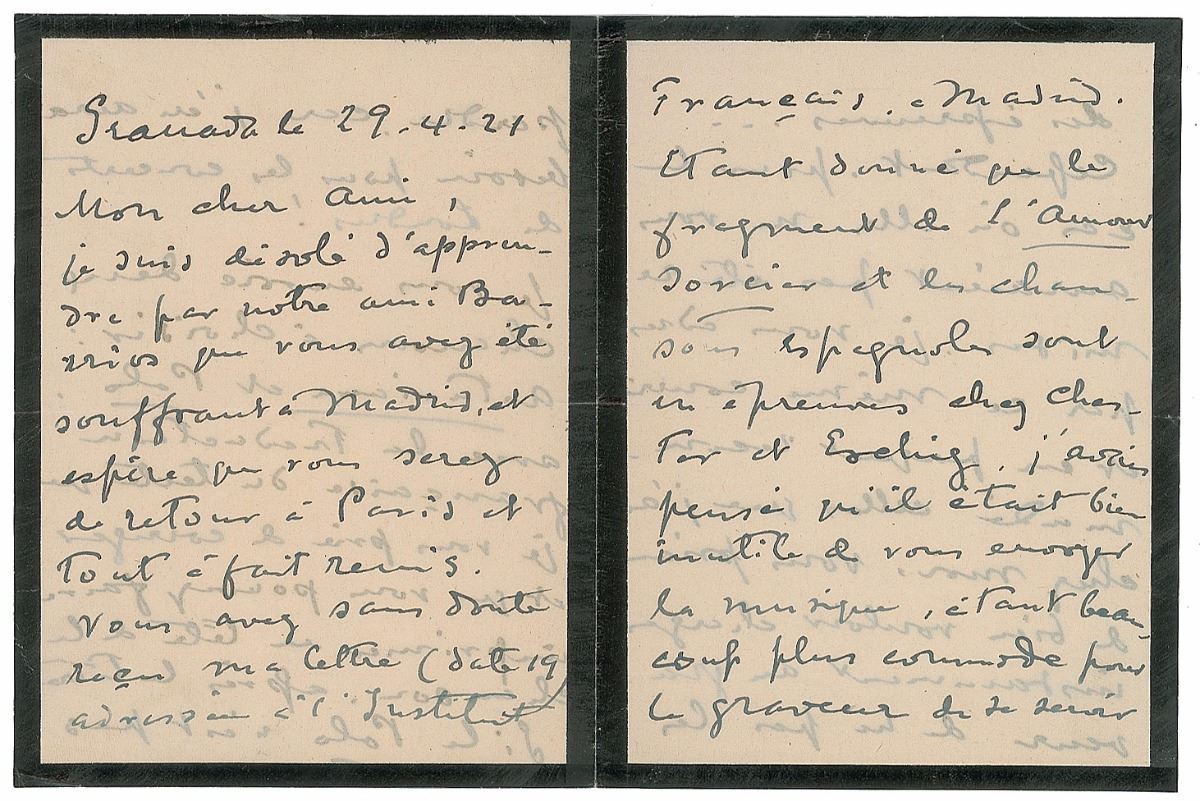 Granada le 29.4.21
Mon cher Ami,
je suis désolé d'appren-
dre par notre ami Ba-
rrios que vous avez été
souffrant à Madrid, et
espère que vous serez
de retour à Paris et
tout à fait remis.
Vous avez sans doute
reçu ma lettre (date 19)
adressée à l'Institut
Français, a Madrid.
Etant donné que le
fragment de L'Amour
Sorcier et les chan-
sons espagnoles sont
en épreuves chez Ches-
ter et Eschig, j'avais
pensé qu'il était bien
inutile de vous envoyer
la musique, étant beau-
coup plus commode pour
le graveur de se servir